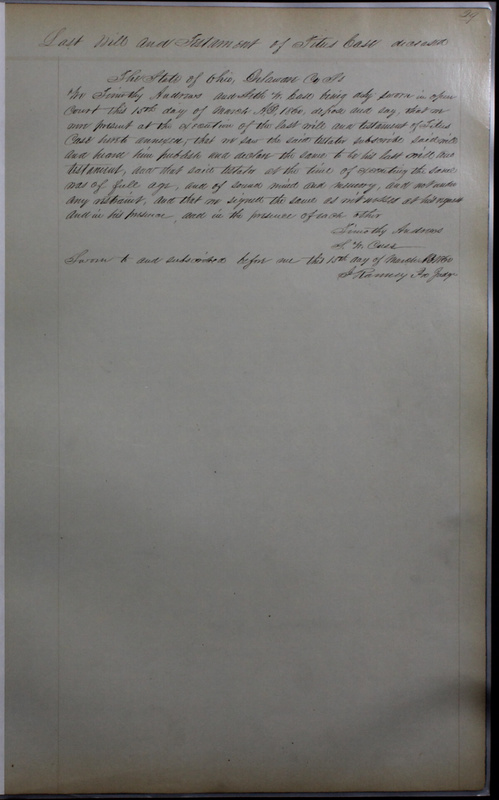 Last Will and Testament of Titus Case deceased
The State of Ohio, Delaware Co. Ss
We Timothy Andrews and Seth W. Case being duly sworn in open
Court this 15th day of March A.D. 1860, depose and say, that we
were present at the execution of the last will and testament of Titus
Case hereto annexed; that we saw the said testator subscribe said will
and heard him publish and declare the same to be his last will and
testament, and that said testator at the time of executing the same
was of full age, and of sound mind and memory, and not under
any restraint, and that we signed the same as witnesses at his request
and in his presence, and in the presence of each other
Timothy Andrews
S. W. Case
Sworn to and subscribed before me this 15th day of March AD 1860
Ranney Pro Judge